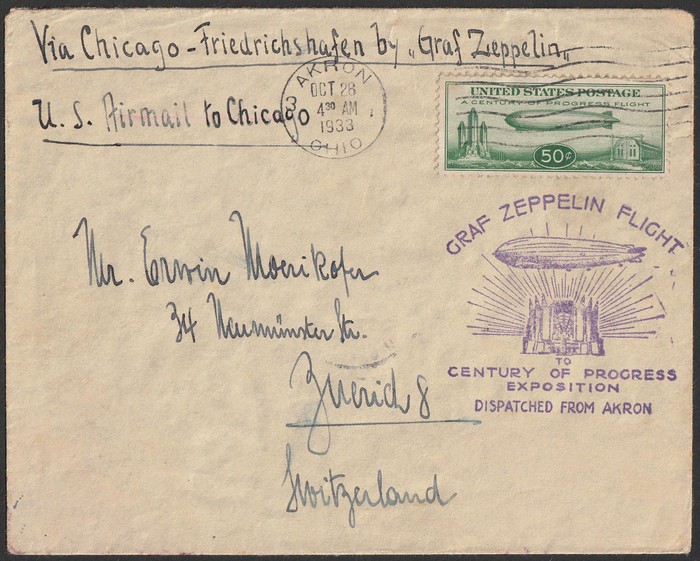 Via Chicago - Friedrichshafen by „Graf Zeppelin„
U. S. Airmail to Chicago
AKRON
OCT 28
4 30 AM
1933
OHIO
3
UNITED STATES POSTAGE
A CENTURY OF PROGRESS FLIGHT
50¢
GRAF ZEPPELIN FLIGHT
TO
CENTURY OF PROGRESS
EXPOSITION
DISPATCHED FROM AKRON
Mr. Erwin Moerikofer
34 Neumünster Str.
Zuerich 8
Switzerland